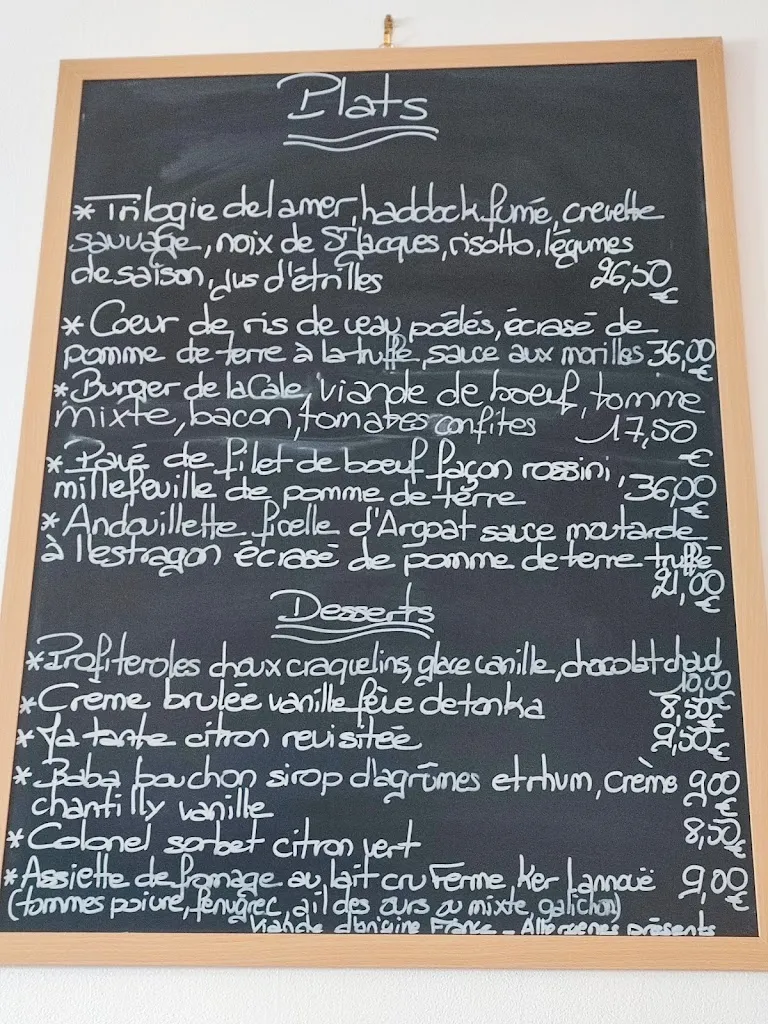 Plats
* Trilogie de la mer, haddock fumé, crevette
sauvage, noix de St Jacques, risotto, légumes
de saison, jus d'étrilles 26,50 €
* Coeur de ris de veau poêlés, écrasé de
pomme de terre à la truffe, sauce aux morilles 36,00 €
* Burger de la Cale, viande de boeuf, tomme
mixte, bacon, tomates confites 17,50 €
* Pavé de filet de boeuf façon rossini,
millefeuille de pomme de terre 36,00 €
* Andouillette ficelle d'Argoat sauce moutarde
à l'estragon écrasé de pomme de terre truffé
21,00 €
Desserts
* Profiteroles choux craquelins, glace vanille, chocolat chaud
10,00 €
* Crème brulée vanille fève de tonka 8,50 €
* La tarte citron revisitée 9,50 €
* Baba bouchon sirop d'agrûmes et rhum, crème 9,00 €
chantilly vanille
* Colonel sorbet citron vert 8,50 €
* Assiette de fromage au lait cru Ferme Ker Lannouë 9,00 €
(tommes poivre, fenugrec, ail des ours ou mixte, galichon)
Viande d'origine France - Allergènes présents